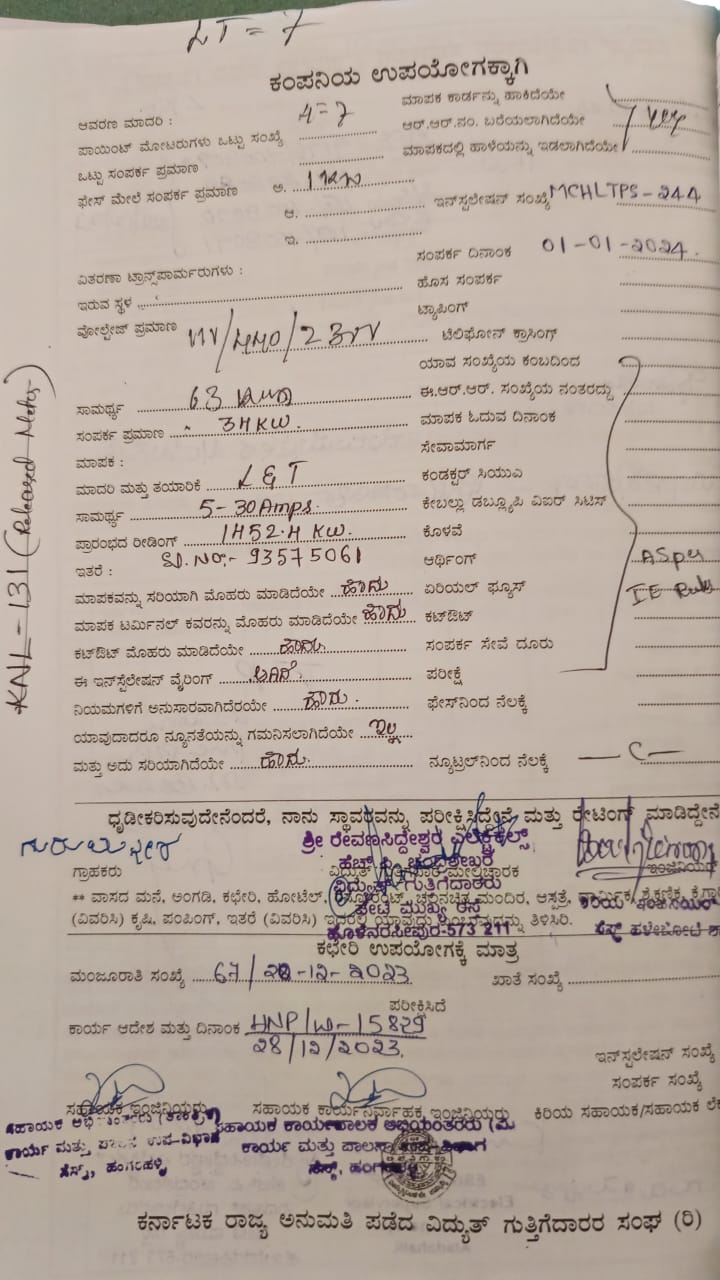 LT = 7
ಕಂಪನಿಯ ಉಪಯೋಗಕ್ಕಾಗಿ
ಆವರಣ ಮಾದರಿ :
ಪಾಯಿಂಟ್ ಮೋಟರುಗಳು ಒಟ್ಟು ಸಂಖ್ಯೆ 4=7
ಒಟ್ಟು ಸಂಪರ್ಕ ಪ್ರಮಾಣ
ಫೇಸ್ ಮೇಲೆ ಸಂಪರ್ಕ ಪ್ರಮಾಣ ಅ. 1 KW
ಆ.
ಇ.
ವಿತರಣಾ ಟ್ರಾನ್ಸ್‌ಪಾರ್ಮರುಗಳು :
ಇರುವ ಸ್ಥಳ
ವೋಲ್ಟೇಜ್ ಪ್ರಮಾಣ
ಸಾಮರ್ಥ್ಯ 63
ಸಂಪರ್ಕ ಪ್ರಮಾಣ 34 KW.
ಮಾಪಕ :
ಮಾದರಿ ಮತ್ತು ತಯಾರಿಕೆ L & T
ಸಾಮರ್ಥ್ಯ 5-30 Amps.
ಪ್ರಾರಂಭದ ರೀಡಿಂಗ್ 1452.4 KW.
ಇತರೆ : Sl. No:- 93575061
ಮಾಪಕವನ್ನು ಸರಿಯಾಗಿ ಮೊಹರು ಮಾಡಿದೆಯೇ ಹೌದು
ಮಾಪಕ ಟರ್ಮಿನಲ್ ಕವರನ್ನು ಮೊಹರು ಮಾಡಿದೆಯೇ ಹೌದು
ಕಟ್‌ಔಟ್ ಮೊಹರು ಮಾಡಿದೆಯೇ ಹೌದು.
ಈ ಇನ್‌ಸ್ಟಲೇಷನ್ ವೈರಿಂಗ್ ಆಗಿದೆ.
ನಿಯಮಗಳಿಗೆ ಅನುಸಾರವಾಗಿದೆರಯೇ ಹೌದು.
ಯಾವುದಾದರೂ ನ್ಯೂನತೆಯನ್ನು ಗಮನಿಸಲಾಗಿದೆಯೇ ಇಲ್ಲ
ಮತ್ತು ಅದು ಸರಿಯಾಗಿದೆಯೇ ಹೌದು.
ಮಾಪಕ ಕಾರ್ಡನ್ನು ಹಾಕಿದೆಯೇ
ಆರ್.ಆರ್.ನಂ. ಬರೆಯಲಾಗಿದೆಯೇ yes
ಮಾಪಕದಲ್ಲಿ ಹಾಳೆಯನ್ನು ಇಡಲಾಗಿದೆಯೇ
ಇನ್‌ಸ್ಟಲೇಷನ್ ಸಂಖ್ಯೆ MCHLTPS-244
ಸಂಪರ್ಕ ದಿನಾಂಕ 01-01-2024.
ಹೊಸ ಸಂಪರ್ಕ
ಟ್ಯಾಪಿಂಗ್
ಟೆಲಿಫೋನ್ ಕ್ರಾಸಿಂಗ್
ಯಾವ ಸಂಖ್ಯೆಯ ಕಂಬದಿಂದ
ಈ.ಆರ್.ಆರ್. ಸಂಖ್ಯೆಯ ನಂತರದ್ದು
ಮಾಪಕ ಓದುವ ದಿನಾಂಕ
ಸೇವಾಮಾರ್ಗ
ಕಂಡಕ್ಟರ್ ಸಿಯುವಿ
ಕೇಬಲ್ಲು ಡಬ್ಲ್ಯೂಪಿ ವಿಐರ್ ಸಿಟಿಸ್
ಕೊಳವೆ
ಆರ್ಥಿಂಗ್ As per
ಏರಿಯಲ್ ಫ್ಯೂಸ್ IE Rules
ಕಟ್‌ಔಟ್
ಸಂಪರ್ಕ ಸೇವೆ ದೂರು
ಪರೀಕ್ಷೆ
ಫೇಸ್‌ನಿಂದ ನೆಲಕ್ಕೆ
ನ್ಯೂಟ್ರಲ್‌ನಿಂದ ನೆಲಕ್ಕೆ
KNL-131 (Released Meter)
ಧೃಡೀಕರಿಸುವುದೇನೆಂದರೆ, ನಾನು ಸ್ಥಾವರವನ್ನು ಪರೀಕ್ಷಿಸಿದ್ದೇನೆ ಮತ್ತು ರೇಟಿಂಗ್ ಮಾಡಿದ್ದೇನೆ
ಶ್ರೀ ರೇವಣಸಿದ್ದೇಶ್ವರ ಎಲೆಕ್ಟ್ರಿಕಲ್ಸ್
ಹೆಚ್.ಸಿ. ಚಂದ್ರಶೇಖರ
ಗ್ರಾಹಕರು
ವಿದ್ಯುತ್ ಗುತ್ತಿಗೆದಾರರು
ಪೇಟೆ ಮುಖ್ಯ ರಸ್ತೆ
ಹೊಳೆನರಸೀಪುರ-573 211
** ವಾಸದ ಮನೆ, ಅಂಗಡಿ, ಕಛೇರಿ, ಹೋಟೆಲ್, ಚಲನಚಿತ್ರ ಮಂದಿರ, ಆಸ್ಪತ್ರೆ,
(ವಿವರಿಸಿ) ಕೃಷಿ, ಪಂಪಿಂಗ್, ಇತರೆ (ವಿವರಿಸಿ) ಇದರಲ್ಲಿ ಯಾವುದು ಎಂಬುವುದನ್ನು ತಿಳಿಸಿರಿ.
ಕಛೇರಿ ಉಪಯೋಗಕ್ಕೆ ಮಾತ್ರ
ಮಂಜೂರಾತಿ ಸಂಖ್ಯೆ 67/20-12-2023 ಖಾತೆ ಸಂಖ್ಯೆ
ಪರೀಕ್ಷಿಸಿದೆ
ಕಾರ್ಯ ಆದೇಶ ಮತ್ತು ದಿನಾಂಕ HNP/W-15829
28/12/2023.
ಇನ್‌ಸ್ಟಲೇಷನ್ ಸಂಖ್ಯೆ
ಸಂಪರ್ಕ ಸಂಖ್ಯೆ
ಸಹಾಯಕ ಇಂಜಿನಿಯರು ಸಹಾಯಕ ಕಾರ್ಯನಿರ್ವಾಹಕ ಇಂಜಿನಿಯರು ಕಿರಿಯ ಸಹಾಯಕ/ಸಹಾಯಕ
ಕಾರ್ಯ ಮತ್ತು ಪಾಲನಾ ಉಪ-ವಿಭಾಗ
ಸೆಸ್ಕ್, ಹಂಗರಹಳ್ಳಿ
ಸಹಾಯಕ ಕಾರ್ಯಪಾಲಕ ಅಭಿಯಂತರರು
ಕಾರ್ಯ ಮತ್ತು ಪಾಲನಾ
ಕರ್ನಾಟಕ ರಾಜ್ಯ ಅನುಮತಿ ಪಡೆದ ವಿದ್ಯುತ್ ಗುತ್ತಿಗೆದಾರರ ಸಂಘ (ರಿ)